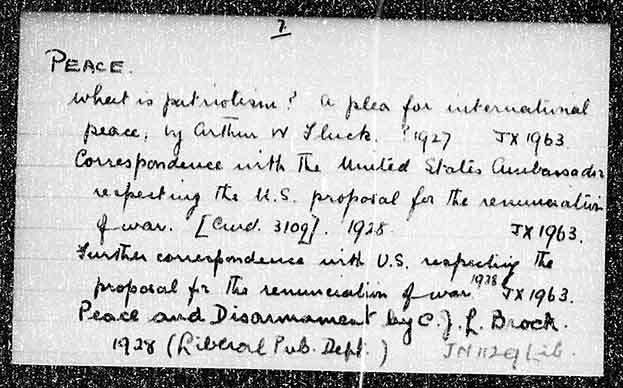 7.
PEACE.
What is patriotism? A plea for international
peace, by Arthur W Fluck. ?1927 JX1963
Correspondence with the United States Ambassador
respecting the U.S. proposal for the renunciation
of war. [Cmd. 3109]. 1928 JX1963.
Further correspondence with U.S. respecting the
proposal for the renunciation of war 1928 JX1963.
Peace and Disarmament by C. J. L. Brock.
1928 (Liberal Pub. Dept.) JN1129 Lib.